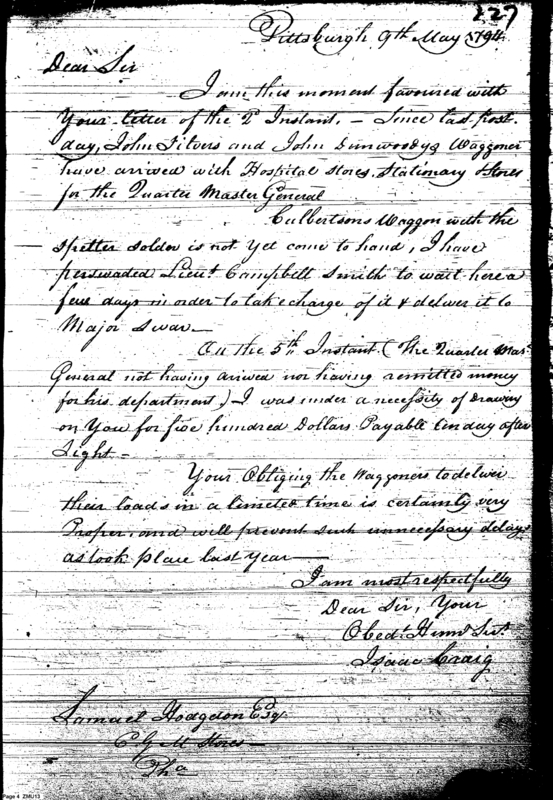 227
Pittsburgh 9th May 1794
Dear Sir
I am this moment favoured with
Your letter of the 2d Instant. – Since last post
day, John Tilvers and John Dunwoodys Waggoner
have arrived with Hospital stores, Stationary & Stores
for the Quarter Master General
Culbertsons Waggon with the
spelter solder is not yet come to hand, I have
perswaded Lieut. Campbell Smith to wait here a
few days in order to take charge of it & deliver it to
Major Swan –
On the 5th Instant (The Quarter Mas.
General not having arrived nor having remitted money
for his department) – I was under a necessity of drawing
on You for five hundred Dollars Payable ten day after
Sight –
Your Obliging the Waggoners to deliver
their loads in a limeted time is certainly very
Proper, and will prevent such unnecessary delays
as took place last year –
I am most respectfully
Dear Sir, Your
Obedt. Hum. Sert.
Isaac Craig
Samuel Hodgdon Esqr.
C G M Stores –
Pha
Page 4 ZMU13